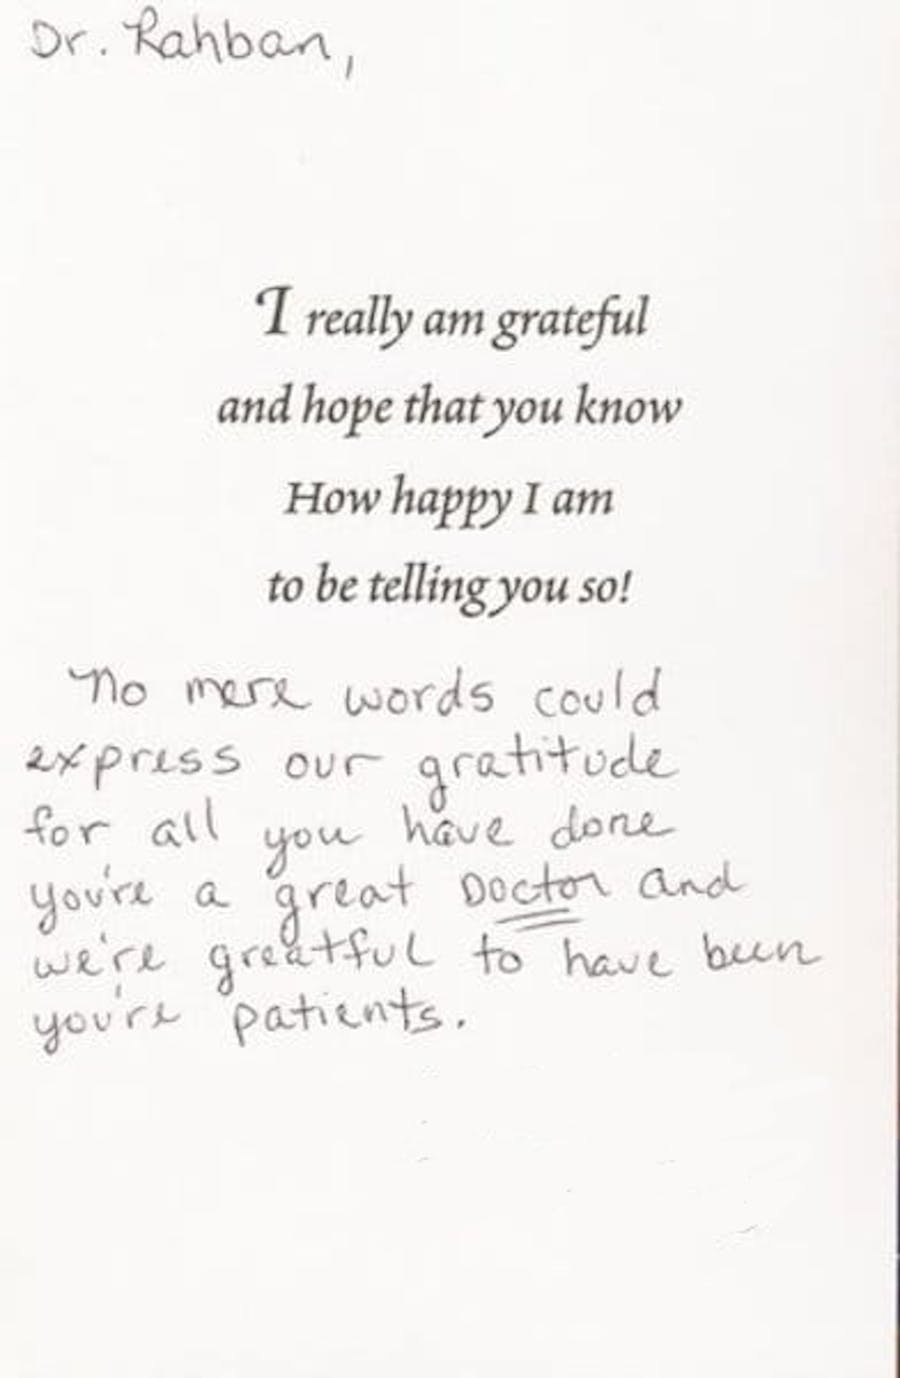 Dr. Rahban,
I really am grateful
and hope that you know
How happy I am
to be telling you so!
No mere words could
express our gratitude
for all you have done
you're a great Doctor and
we're greatful to have been
you're patients.